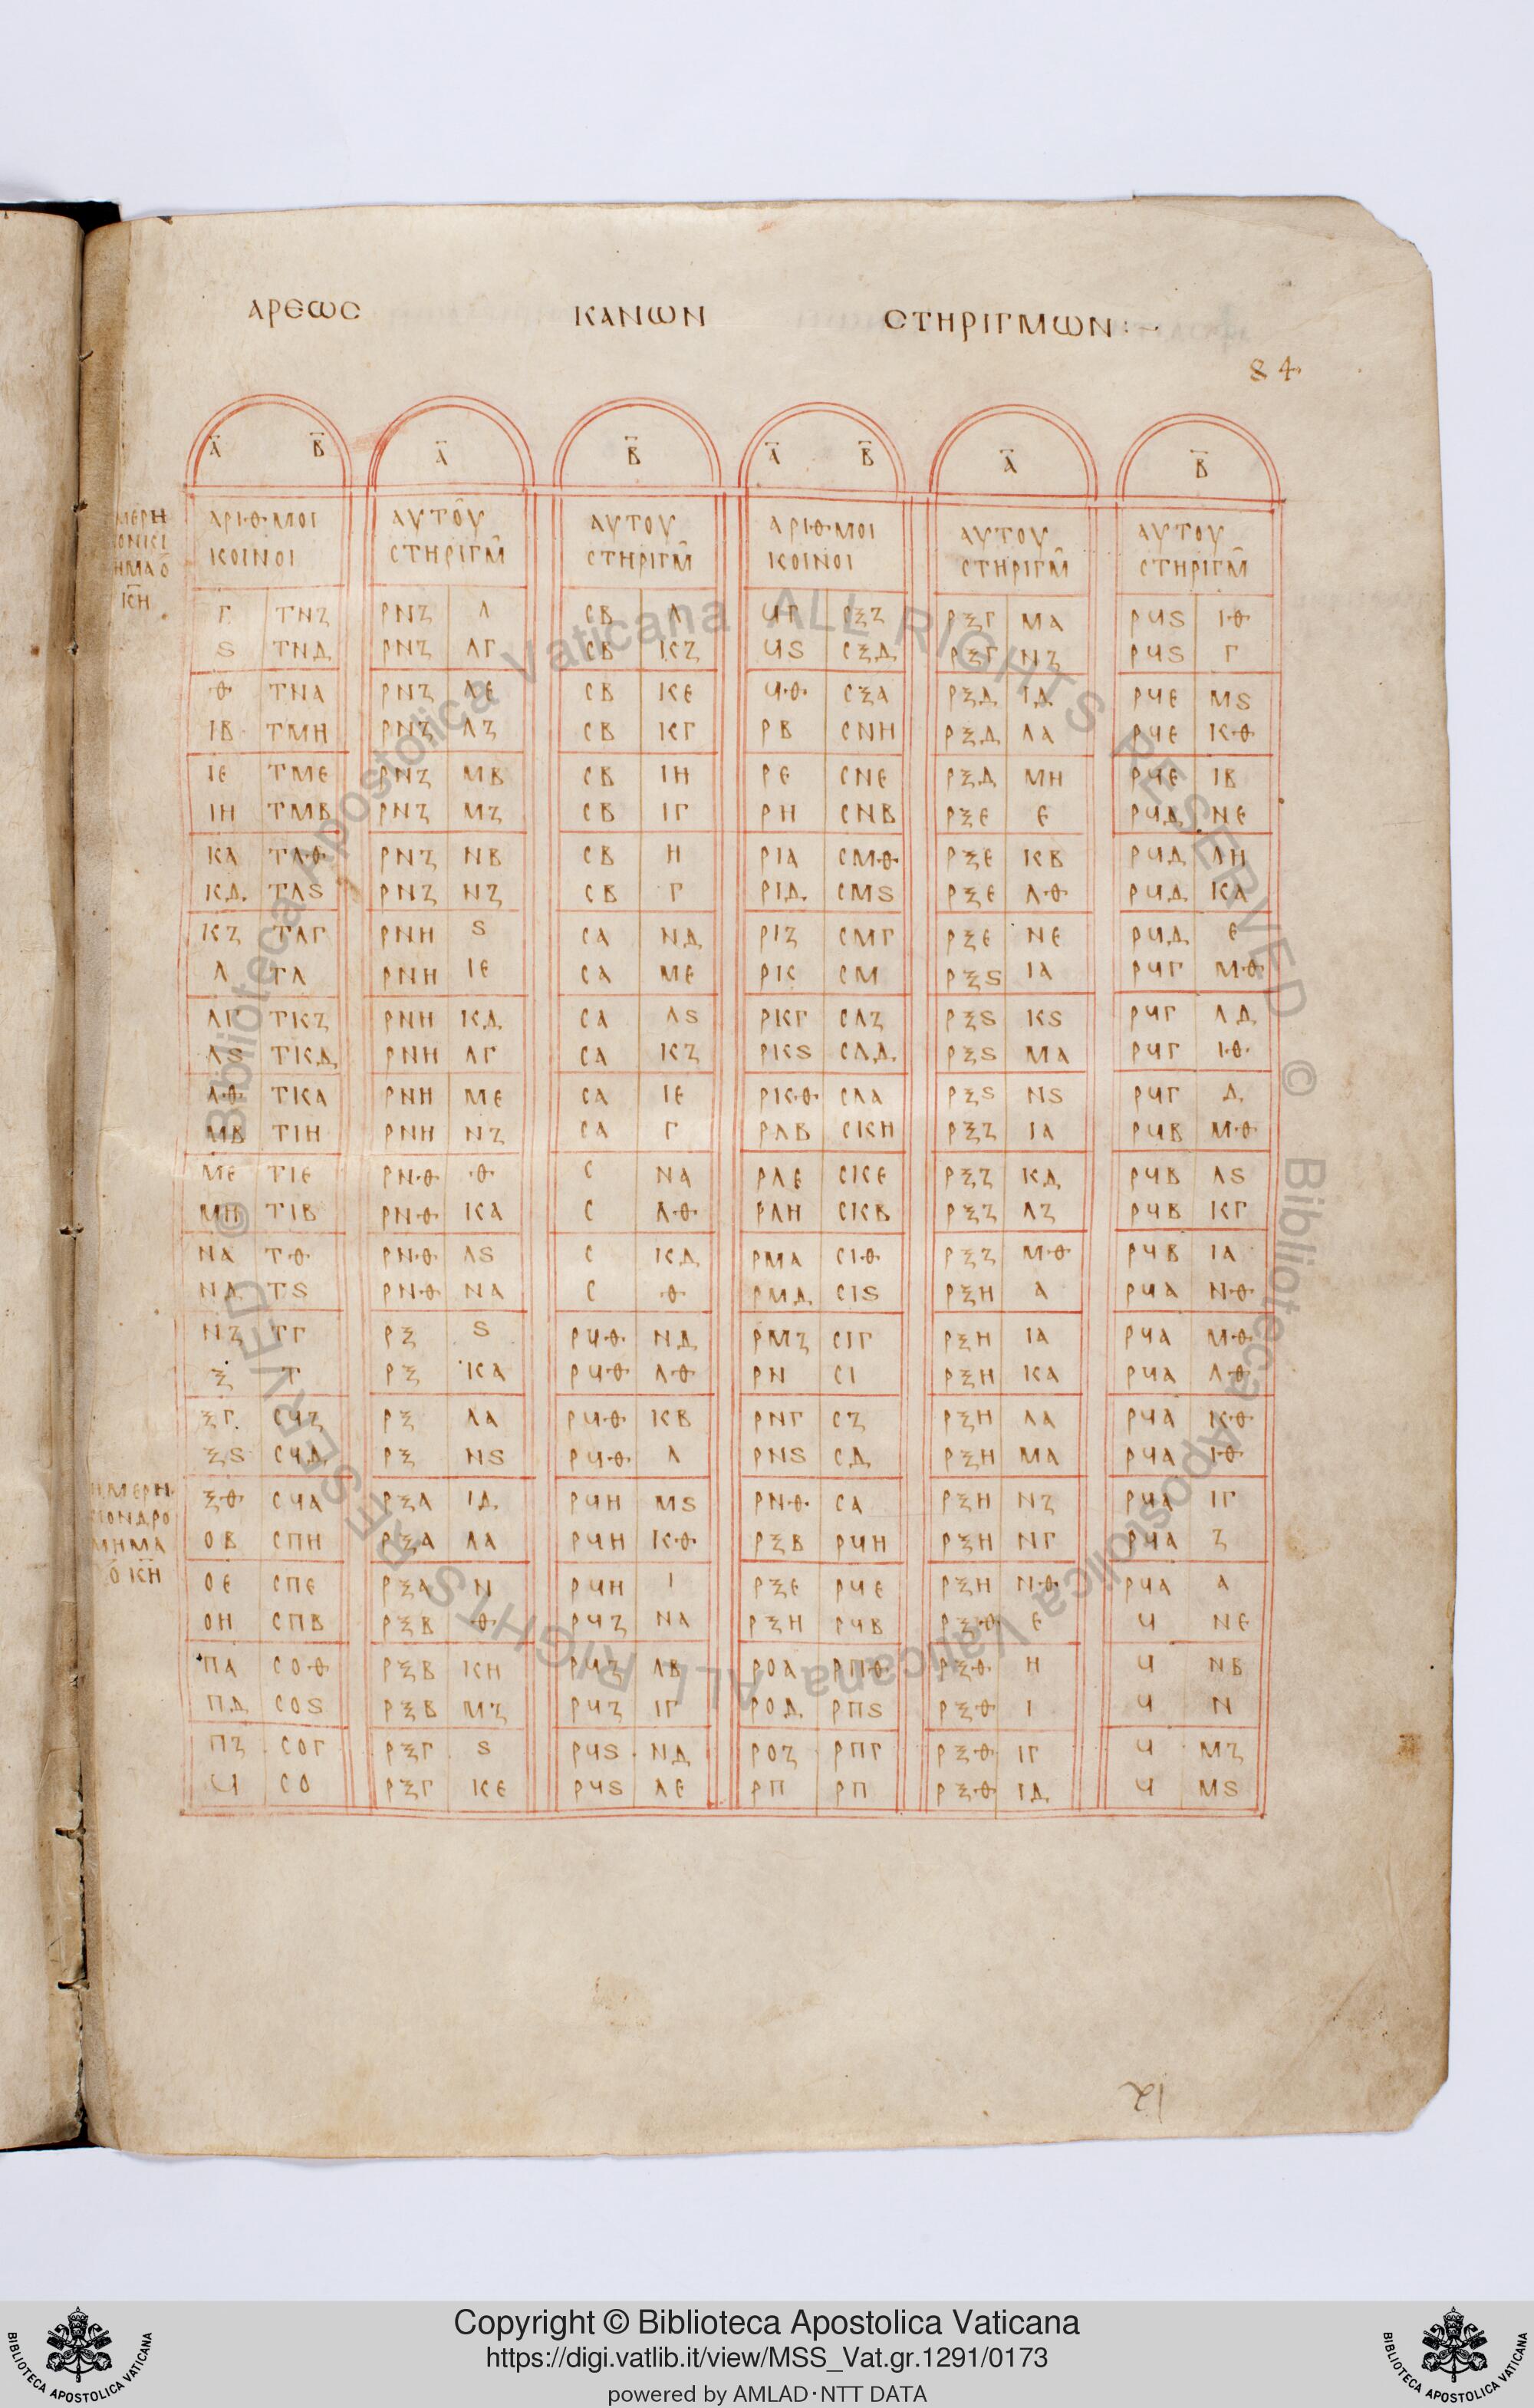 ΑΡΕΩΣ ΚΑΝΩΝ ΣΤΗΡΙΓΜΩΝ:~
84
Α Β Α Β Α Β Α Β
ΑΡΙΘΜΟΙ ΑΥΤΟΥ ΑΥΤΟΥ ΑΡΙΘΜΟΙ ΑΥΤΟΥ ΑΥΤΟΥ
ΚΟΙΝΟΙ ΣΤΗΡΙΓΜ ΣΤΗΡΙΓΜ ΚΟΙΝΟΙ ΣΤΗΡΙΓΜ ΣΤΗΡΙΓΜ
Γ ΤΝΖ ΡΝΖ Λ ΣΒ Λ ϤΓ ΡΞΖ ΡΞΓ ΜΑ ΡϤS ΙΘ
S ΤΝΔ ΡΝΖ ΛΓ ΣΒ ΚΖ ϤS ΣΞΔ ΡΞΓ ΝΖ ΡϤS Γ
Θ ΤΝΑ ΡΝΖ ΛΕ ΣΒ ΚΕ ϤΘ ΣΞΑ ΡΞΔ ΙΔ ΡϤΕ ΜS
ΙΒ ΤΜΗ ΡΝΖ ΛΖ ΣΒ ΚΓ ΡΒ ΣΝΗ ΡΞΔ ΛΑ ΡϤΕ ΚΘ
ΙΕ ΤΜΕ ΡΝΖ ΜΒ ΣΒ ΙΗ ΡΕ ΣΝΕ ΡΞΔ ΜΗ ΡϤΕ ΙΒ
ΙΗ ΤΜΒ ΡΝΖ ΜΖ ΣΒ ΙΓ ΡΗ ΣΝΒ ΡΞΕ Ε ΡϤΔ ΝΕ
ΚΑ ΤΛΘ ΡΝΖ ΝΒ ΣΒ Η ΡΙΑ ΣΜΘ ΡΞΕ ΚΒ ΡϤΔ ΛΗ
ΚΔ ΤΛS ΡΝΖ ΝΖ ΣΒ Γ ΡΙΔ ΣΜS ΡΞΕ ΛΘ ΡϤΔ ΚΑ
ΚΖ ΤΛΓ ΡΝΗ S ΣΑ ΝΔ ΡΙΖ ΣΜΓ ΡΞΕ ΝΕ ΡϤΔ Ε
Λ ΤΛ ΡΝΗ ΙΕ ΣΑ ΜΕ ΡΚ ΣΜ ΡΞS ΙΑ ΡϤΓ ΜΘ
ΛΓ ΤΚΖ ΡΝΗ ΚΔ ΣΑ ΛS ΡΚΓ ΣΛΖ ΡΞS ΚS ΡϤΓ ΛΔ
ΛS ΤΚΔ ΡΝΗ ΛΓ ΣΑ ΚΖ ΡΚS ΣΛΔ ΡΞS ΜΑ ΡϤΓ ΙΘ
ΛΘ ΤΚΑ ΡΝΗ ΜΕ ΣΑ ΙΕ ΡΚΘ ΣΛΑ ΡΞS ΝS ΡϤΓ Δ
ΜΒ ΤΙΗ ΡΝΗ ΝΖ ΣΑ Γ ΡΛΒ ΣΚΗ ΡΞΖ ΙΑ ΡϤΒ ΜΘ
ΜΕ ΤΙΕ ΡΝΘ Θ Σ ΝΑ ΡΛΕ ΣΚΕ ΡΞΖ ΚΔ ΡϤΒ ΛS
ΜΗ ΤΙΒ ΡΝΘ ΚΑ Σ ΛΘ ΡΛΗ ΣΚΒ ΡΞΖ ΛΖ ΡϤΒ ΚΓ
ΝΑ ΤΘ ΡΝΘ ΛS Σ ΚΔ ΡΜΑ ΣΙΘ ΡΞΖ ΜΘ ΡϤΒ ΙΑ
ΝΔ ΤS ΡΝΘ ΝΑ Σ Θ ΡΜΔ ΣΙS ΡΞΗ Α ΡϤΑ ΝΘ
ΝΖ ΤΓ ΡΞ S ΡϤΘ ΝΔ ΡΜΖ ΣΙΓ ΡΞΗ ΙΑ ΡϤΑ ΜΘ
Ξ Τ ΡΞ ΚΑ ΡϤΘ ΛΘ ΡΝ ΣΙ ΡΞΗ ΚΑ ΡϤΑ ΛΘ
ΞΓ ΣϤΖ ΡΞ ΛΑ ΡϤΘ ΚΒ ΡΝΓ ΣΖ ΡΞΗ ΛΑ ΡϤΑ ΚΘ
ΞS ΣϤΔ ΡΞ ΝS ΡϤΘ Λ ΡΝS ΣΔ ΡΞΗ ΜΑ ΡϤΑ ΙΘ
ΞΘ ΣϤΑ ΡΞΑ ΙΔ ΡϤΗ ΜS ΡΝΘ ΣΑ ΡΞΗ ΝΖ ΡϤΑ ΙΓ
ΟΒ ΣΠΗ ΡΞΑ ΛΑ ΡϤΗ ΚΘ ΡΞΒ ΡϤΗ ΡΞΗ ΝΓ ΡϤΑ Ζ
ΟΕ ΣΠΕ ΡΞΑ Ν ΡϤΗ Ι ΡΞΕ ΡϤΕ ΡΞΗ ΝΘ ΡϤΑ Α
ΟΗ ΣΠΒ ΡΞΒ Θ ΡϤΖ ΝΑ ΡΞΗ ΡϤΒ ΡΞΘ Ε Ϥ ΝΕ
ΠΑ ΣΟΘ ΡΞΒ ΚΗ ΡϤΖ ΛΒ ΡΟΑ ΡΠΘ ΡΞΘ Η Ϥ ΝΒ
ΠΔ ΣΟS ΡΞΒ ΜΖ ΡϤΖ ΙΓ ΡΟΔ ΡΠS ΡΞΘ Ι Ϥ Ν
ΠΖ ΣΟΓ ΡΞΓ S ΡϤS ΝΔ ΡΟΖ ΡΠΓ ΡΞΘ ΙΓ Ϥ ΜΖ
Ϥ ΣΟ ΡΞΓ ΚΕ ΡϤS ΛΕ ΡΠ ΡΠ ΡΞΘ ΙΔ Ϥ ΜS
ΜΗΜΑ
Ο ΚΗ
12
© Biblioteca Apostolica Vaticana ALL RIGHTS RESERVED © Biblioteca Apostolica Vaticana ALL RIGHTS RESERVED
Copyright © Biblioteca Apostolica Vaticana
https://digi.vatlib.it/view/MSS_Vat.gr.1291/0173
powered by AMLAD·NTT DATA
BIBLIOTECA APOSTOLICA VATICANA
BIBLIOTECA APOSTOLICA VATICANA